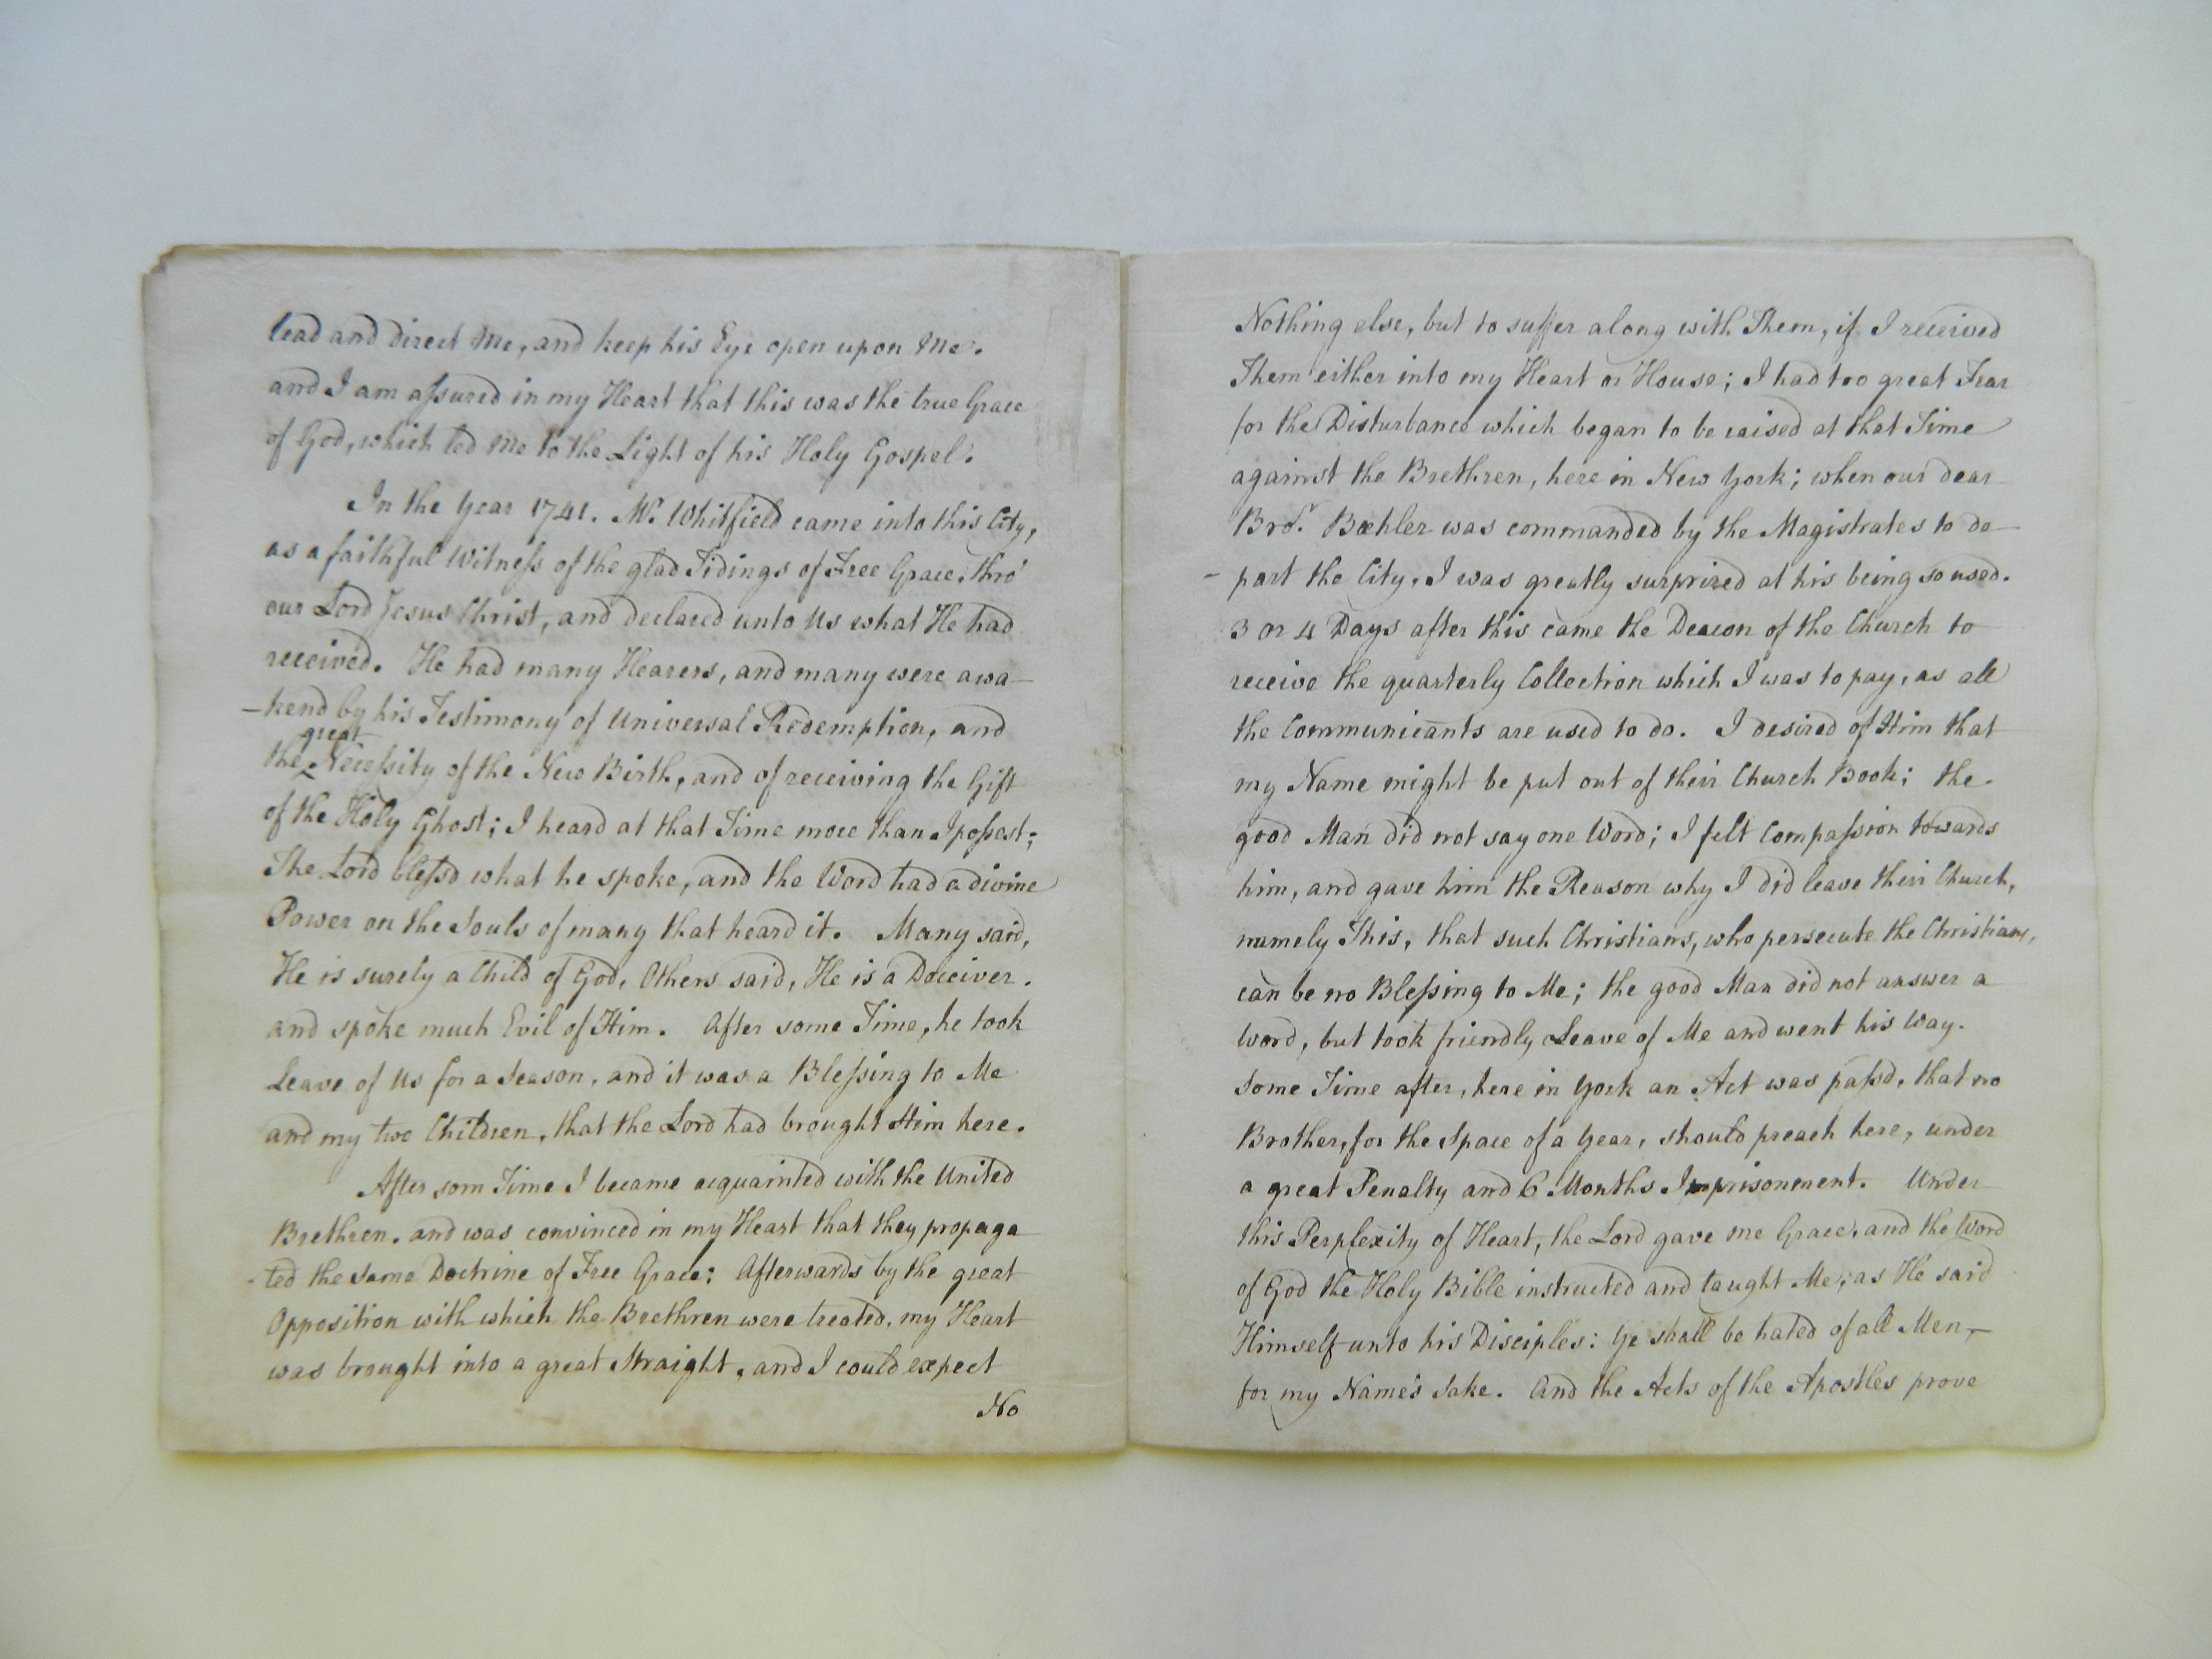 lead and direct Me, and keep his Eye open upon Me.
and I am assured in my Heart that this was the true Grace
of God, which led Me to the Light of his Holy Gospel.
In the Year 1741. Mr. Whitfield came into this City,
as a faithful Witness of the glad Tidings of Free Grace, thro'
our Lord Jesus Christ, and declared unto Us what He had
received. He had many Hearers, and many were awa-
-kend by his Testimony of Universal Redemption, and
great
the Necessity of the New Birth, and of receiving the Gift
of the Holy Ghost; I heard at that Time more than I possest;
The Lord blessd what he spoke, and the Word had a divine
Power on the Souls of many that heard it. Many said,
He is surely a Child of God, Others said, He is a Deceiver.
and spoke much Evil of Him. After some Time, he took
Leave of Us for a Season, and it was a Blessing to Me
and my two Children, that the Lord had brought Him here.
After som Time I became acquainted with the United
Brethren. and was convinced in my Heart that they propaga
-ted the same Doctrine of Free Grace; Afterwards by the great
Opposition with which the Brethren were treated, my Heart
was brought into a great Straight, and I could expect
No
Nothing else, but to suffer along with Them, if I received
Them either into my Heart or House; I had too great Fear
for the Disturbance which began to be raised at that Time
against the Brethren, here in New York; when our dear
Bror. Bœhler was commanded by the Magistrates to de-
-part the City, I was greatly surprized at his being so used.
3 or 4 Days after this came the Deacon of the Church to
receive the quarterly Collection which I was to pay, as all
the Communicants are used to do. I desired of Him that
my Name might be put out of their Church Book; the
good Man did not say one Word; I felt Compassion towards
him, and gave him the Reason why I did leave their Church,
namely This, that such Christians, who persecute the Christians,
can be no Blessing to Me; the good Man did not answer a
Word, but took friendly Leave of Me and went his Way.
Some Time after, here in York an Act was passd, that no
Brother, for the Space of a Year, should preach here, under
a great Penalty and 6 Months Imprisonment. Under
this Perplexity of Heart, the Lord gave me Grace, and the Word
of God the Holy Bible instructed and taught Me, as He said
Himself unto his Disciples: Ye shall be hated of all Men,-
for my Name's Sake. And the Acts of the Apostles prove